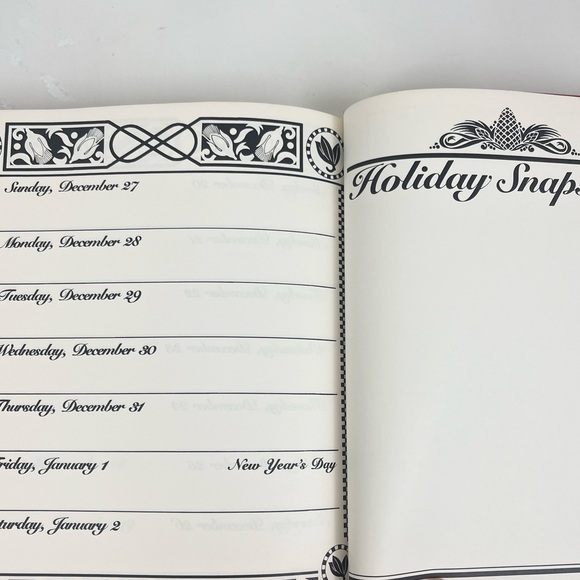 Sunday, December 27
Monday, December 28
Tuesday, December 29
Wednesday, December 30
Thursday, December 31
Friday, January 1 New Year's Day
Saturday, January 2
Holiday Snaps